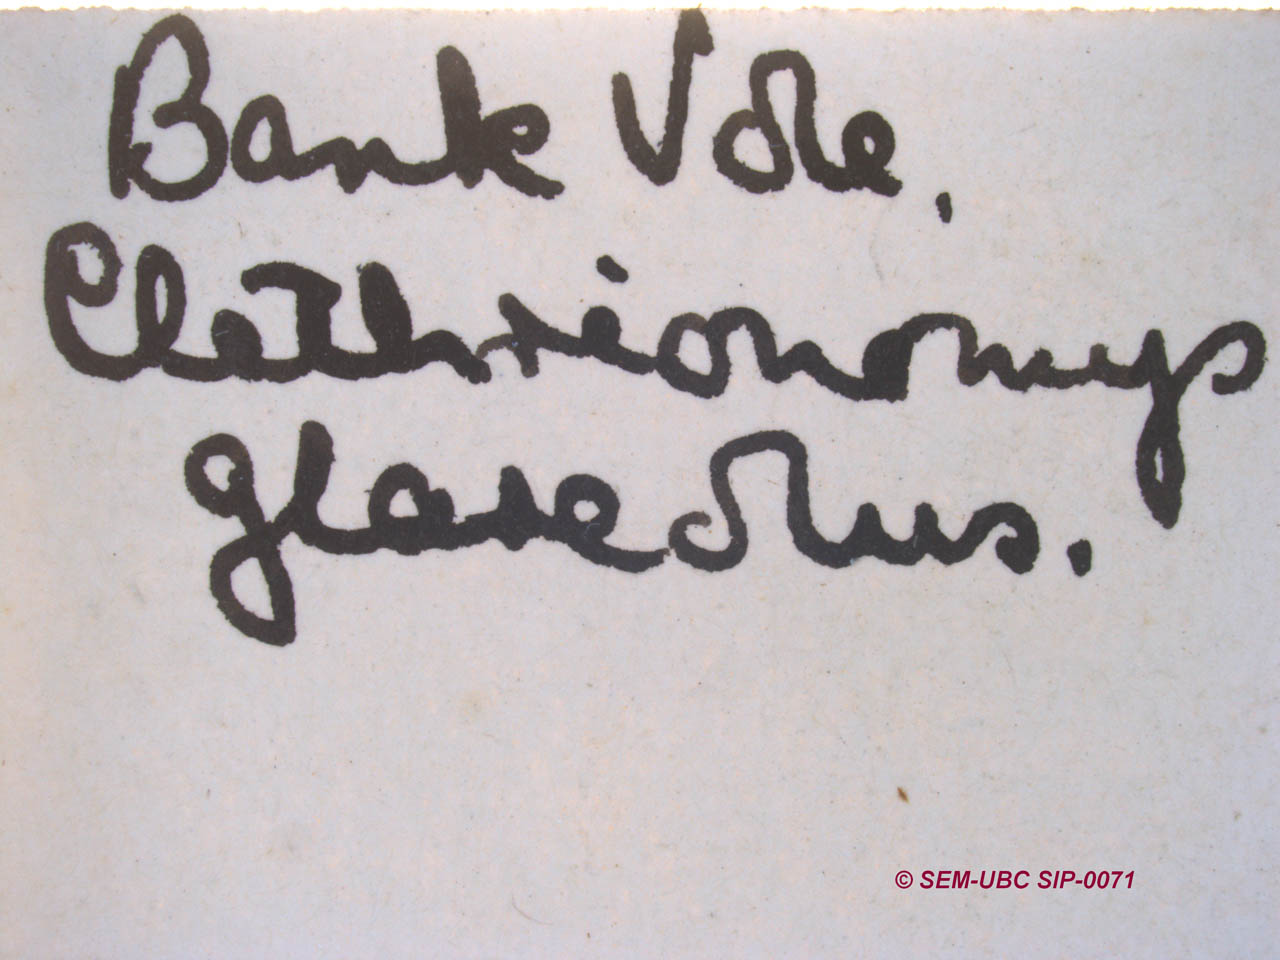 Bank Vole,
Clethrionomys
glareolus.
© SEM-UBC SIP-0071